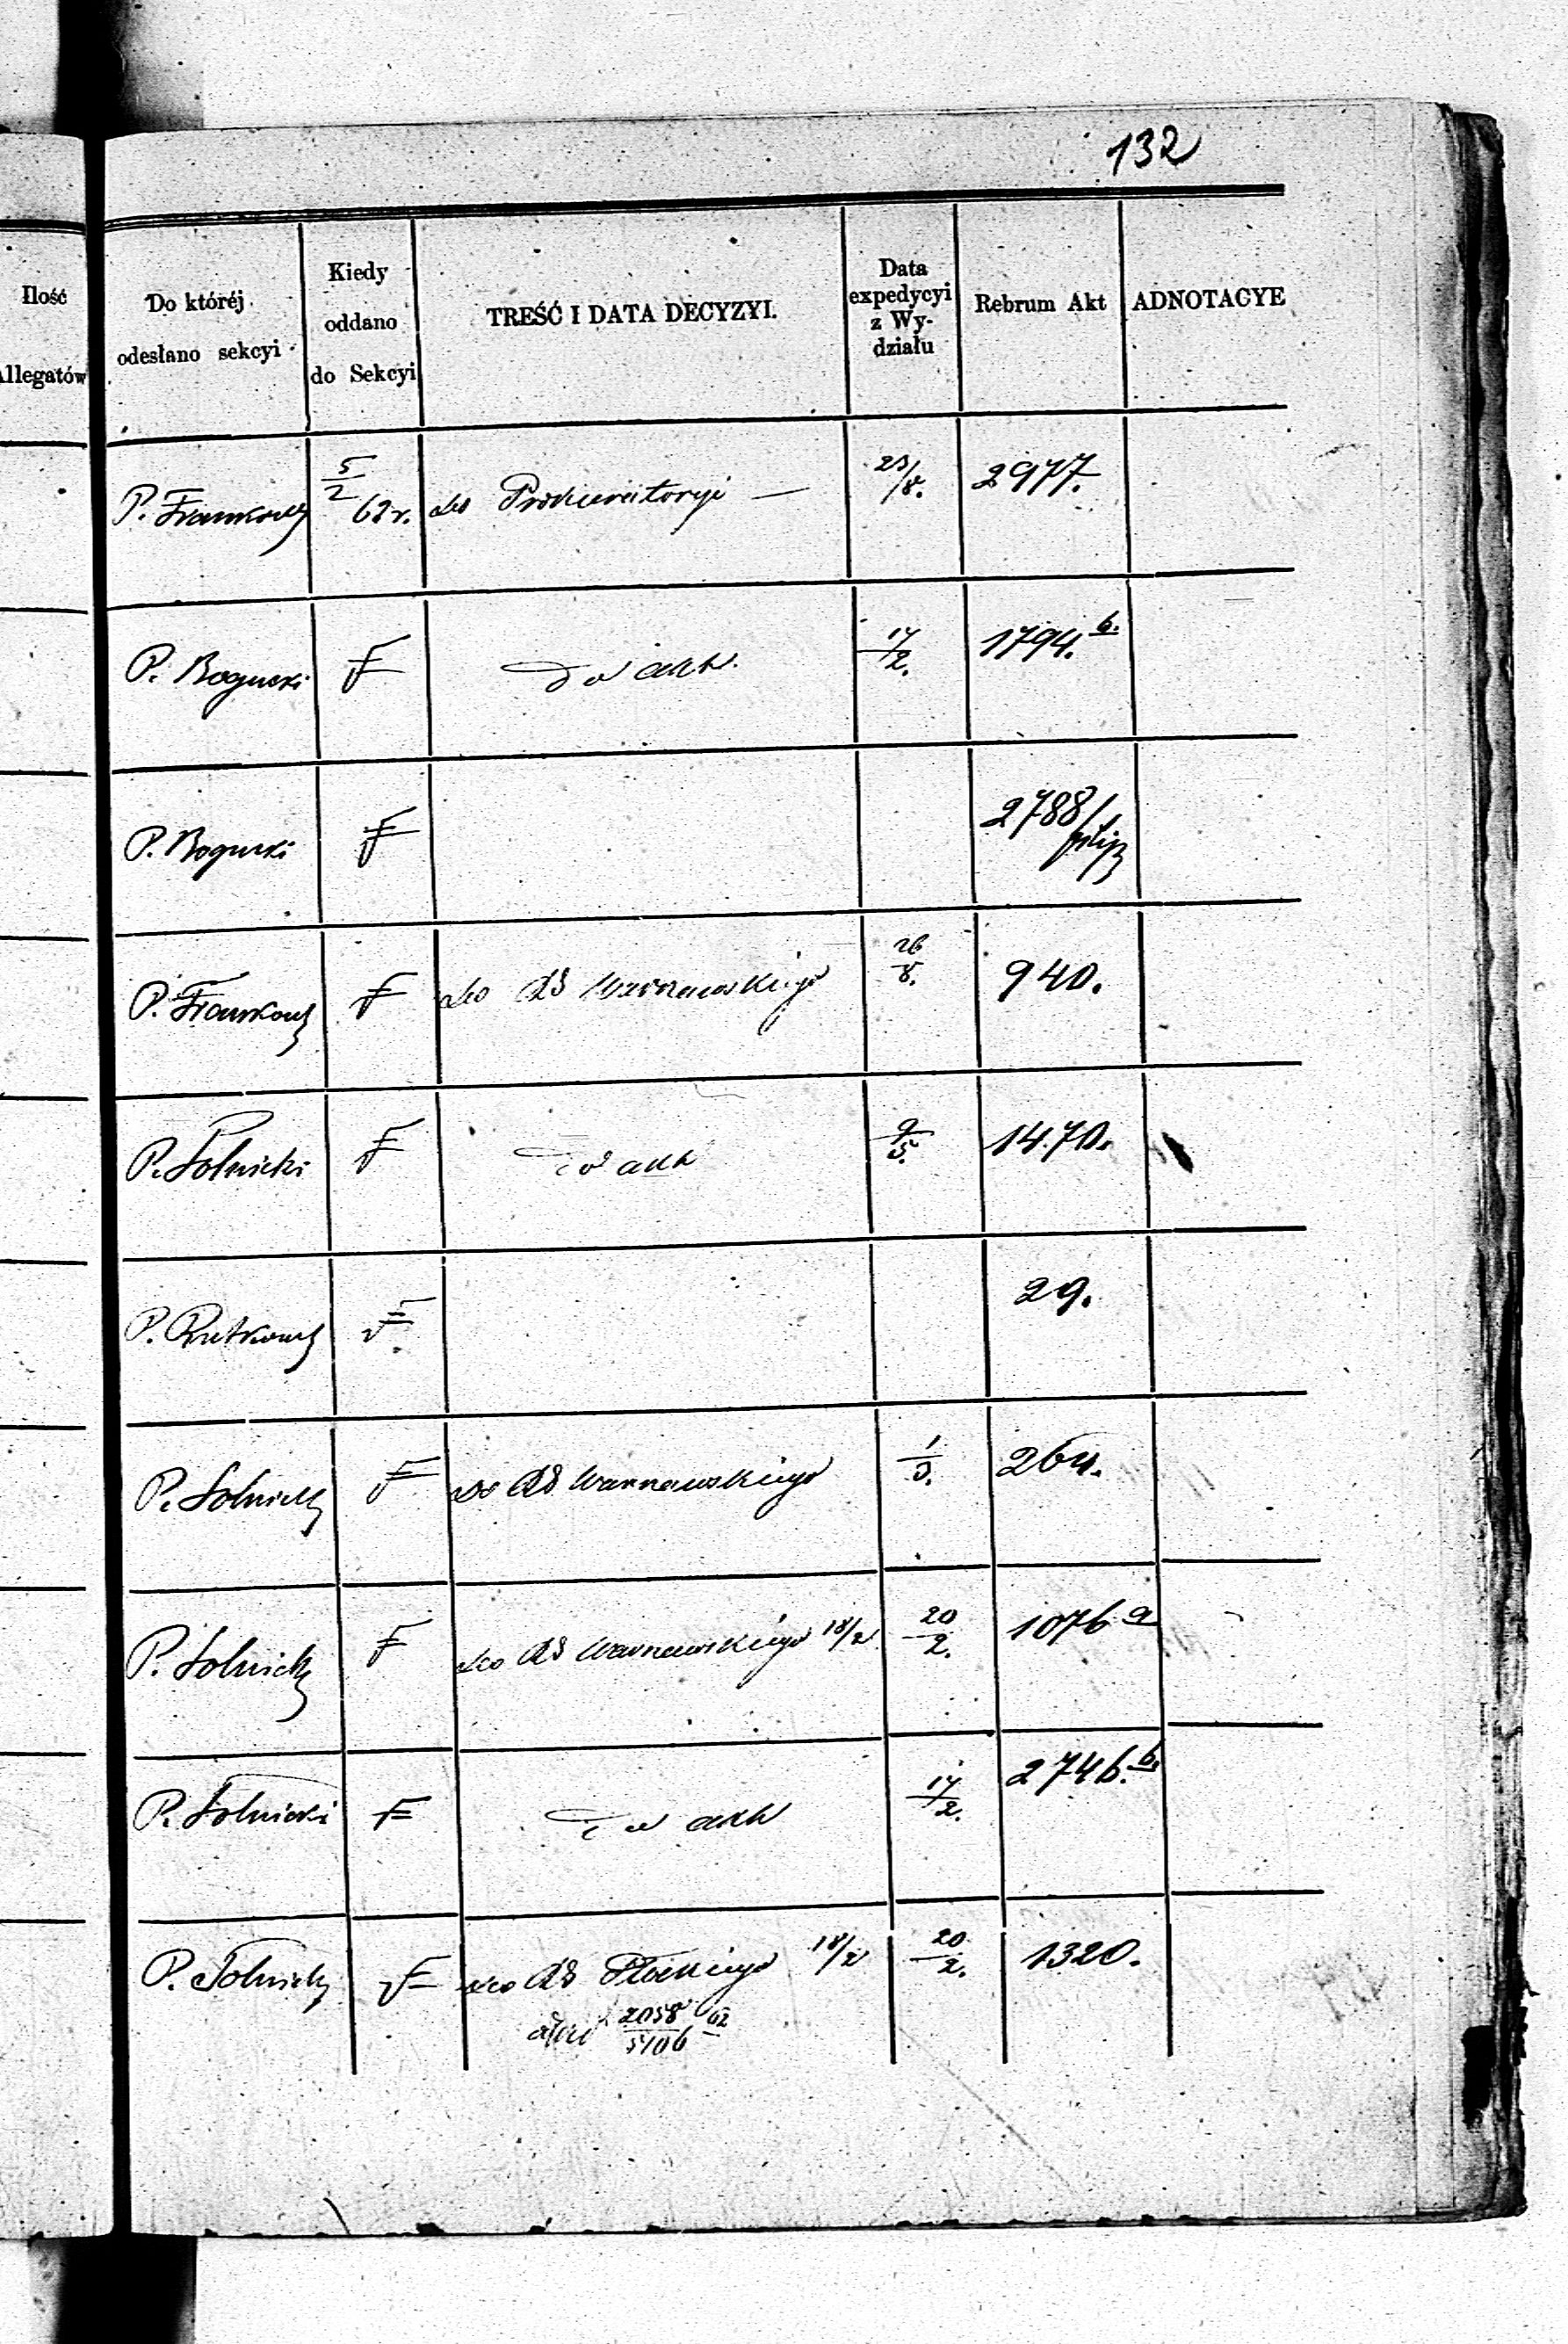 132
Ilość
Allegatów
Do któréj
odesłano sekcyi
Kiedy
oddano
do Sekcyi
TREŚĆ I DATA DECYZYI.
Data
expedycyi
z Wy-
działu
Rebrum Akt
ADNOTACYE
P. Frankows 5/2 62 r. do Prokuratoryi — 23/8. 2977.
P. Bogucki do akt. 17/2. 1794. b.
P. Bogucki 2788/
P. Frankows do RG Warszawskiego 26/8. 940.
P. Solnicki do akt 9/5. 1470.
P. Rutkows 29.
P. Solnicki do RG Warszawskiego 1/3. 264.
P. Solnicki do RG Warszawskiego 18/2 20/2. 1076 a
P. Solnicki do akt 17/2. 2746. b.
P. Solnicki do RG Płockiego 18/2 20/2. 1320.
2058/5106 62